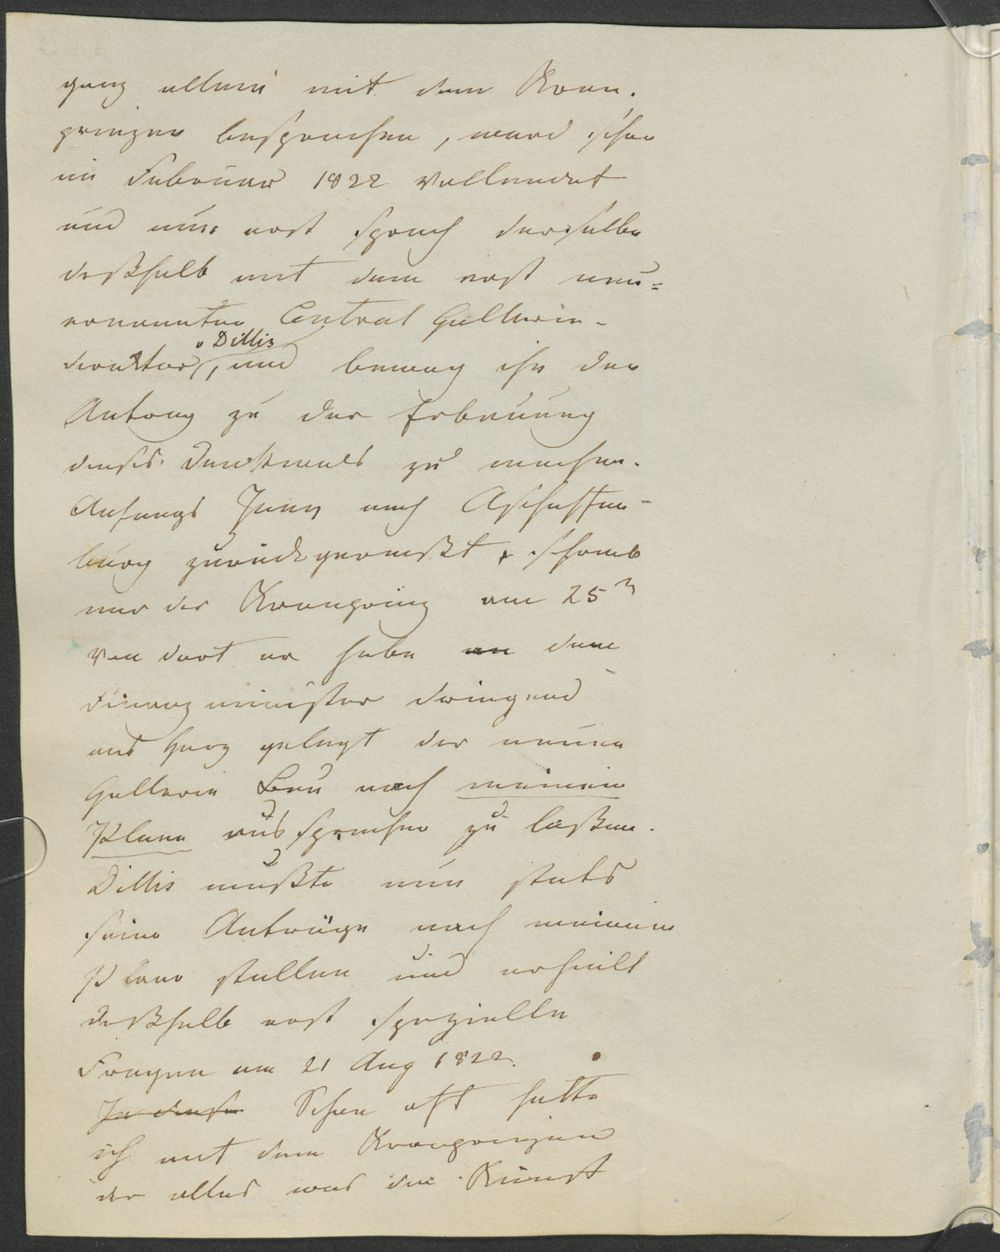 ganz allein mit dem Kron-
prinzen besprochen, ward schon
im Februar 1822 vollendet
und nun erst sprach derselbe
deßhalb mit dem erst neu=
ernannten Central Gallerie-
direktor v Dillis, und bewog ihn den
Antrag zu der Erbauung
dieses Denkmals zu machen.
Anfangs Juny nach Aschaffen-
burg zurückgereißt, schrieb
mir der Kronprinz am 25n
von dort er habe an dem
Finanzminister dringend
ans Herz gelegt der neuen
Gallerie Bau nach meinem
Plane aussprechen zu laßen.
Dillis mußte nun stets
seine Anträge nach meinem
Plane stellen und erhielt
deßhalb erst spezielle
Fragen am 21 Aug 1822.
In diesen Schon oft hatte
ich mit dem Kronprinzen
der alles was die Kunst